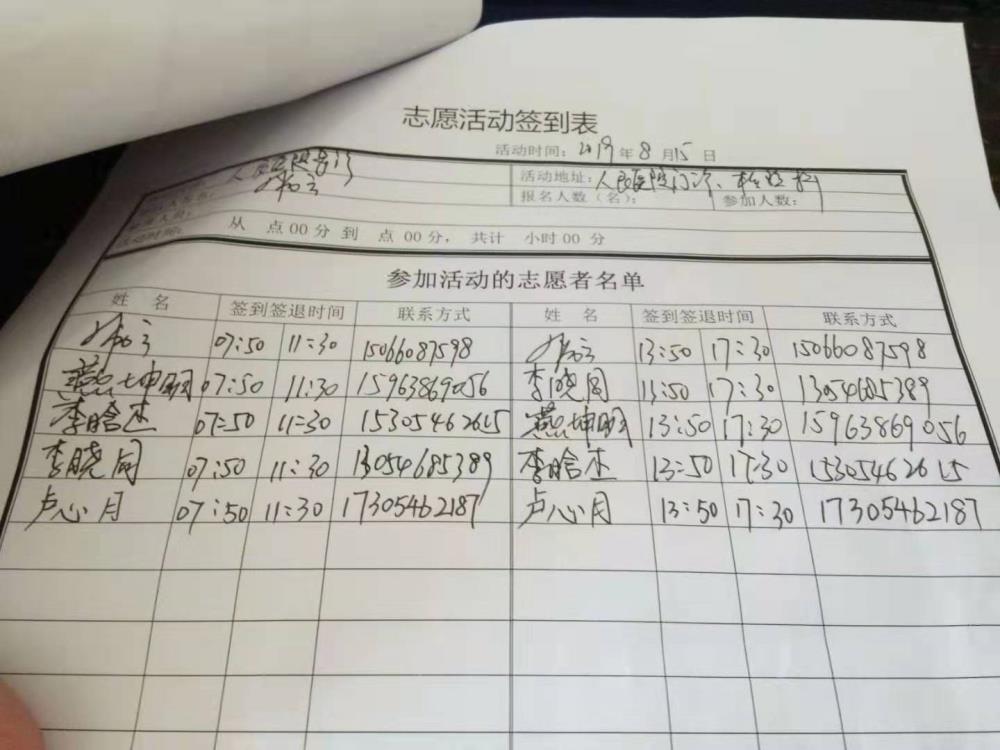 志愿活动签到表
活动时间：2019年8月15日
人民医院
活动地址：人民医院门诊、
报名人数（名）： 参加人数：
活动时间： 从 点00分 到 点 00分， 共计 小时00分
参加活动的志愿者名单
姓 名 签到签退时间 联系方式 姓 名 签到签退时间 联系方式
07:50 11:30 15066087598 13:50 17:30 15066087598
燕坤明 07:50 11:30 15963869056 李晓同 13:50 17:30 13054685389
李晗杰 07:50 11:30 15305462615 燕坤明 13:50 17:30 15963869056
李晓同 07:50 11:30 13054685389 李晗杰 13:50 17:30 15305462615
卢心月 07:50 11:30 17305462187 卢心月 13:50 17:30 17305462187